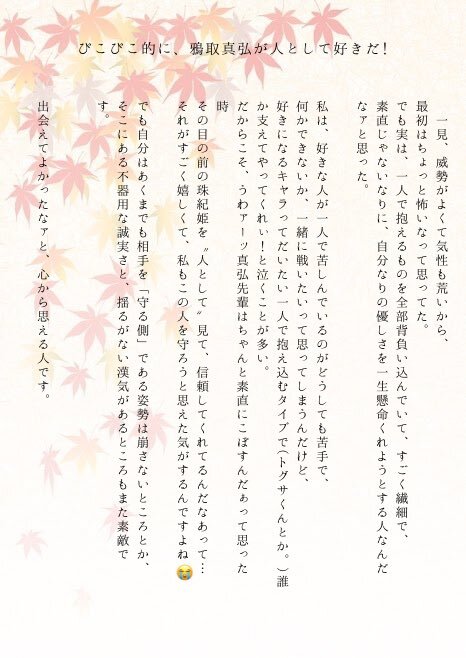 ぴこぴこ的に、鴉取真弘が人として好きだ！
一見、威勢がよくて気性も荒いから、
最初はちょっと怖いなって思ってた。
でも実は、一人で抱えるものを全部背負い込んでいて、すごく繊細で、
素直じゃないなりに、自分なりの優しさを一生懸命くれようとする人なんだ
なァと思った。
私は、好きな人が一人で苦しんでいるのがどうしても苦手で、
何かできないか、一緒に戦いたいって思ってしまうんだけど、
好きになるキャラってだいたい一人で抱え込むタイプで（トグサくんとか。）誰
か支えてやってくれぃ！と泣くことが多い。
だからこそ、うわァーッ真弘先輩はちゃんと素直にこぼすんだぁって思った
時
その目の前の珠紀姫を〝人として〟見て、信頼してくれてるんだなあって…
それがすごく嬉しくて、私もこの人を守ろうと思えた気がするんですよね😭
でも自分はあくまでも相手を「守る側」である姿勢は崩さないところとか、
そこにある不器用な誠実さと、揺るがない漢気があるところもまた素敵で
す。
出会えてよかったなァと、心から思える人です。